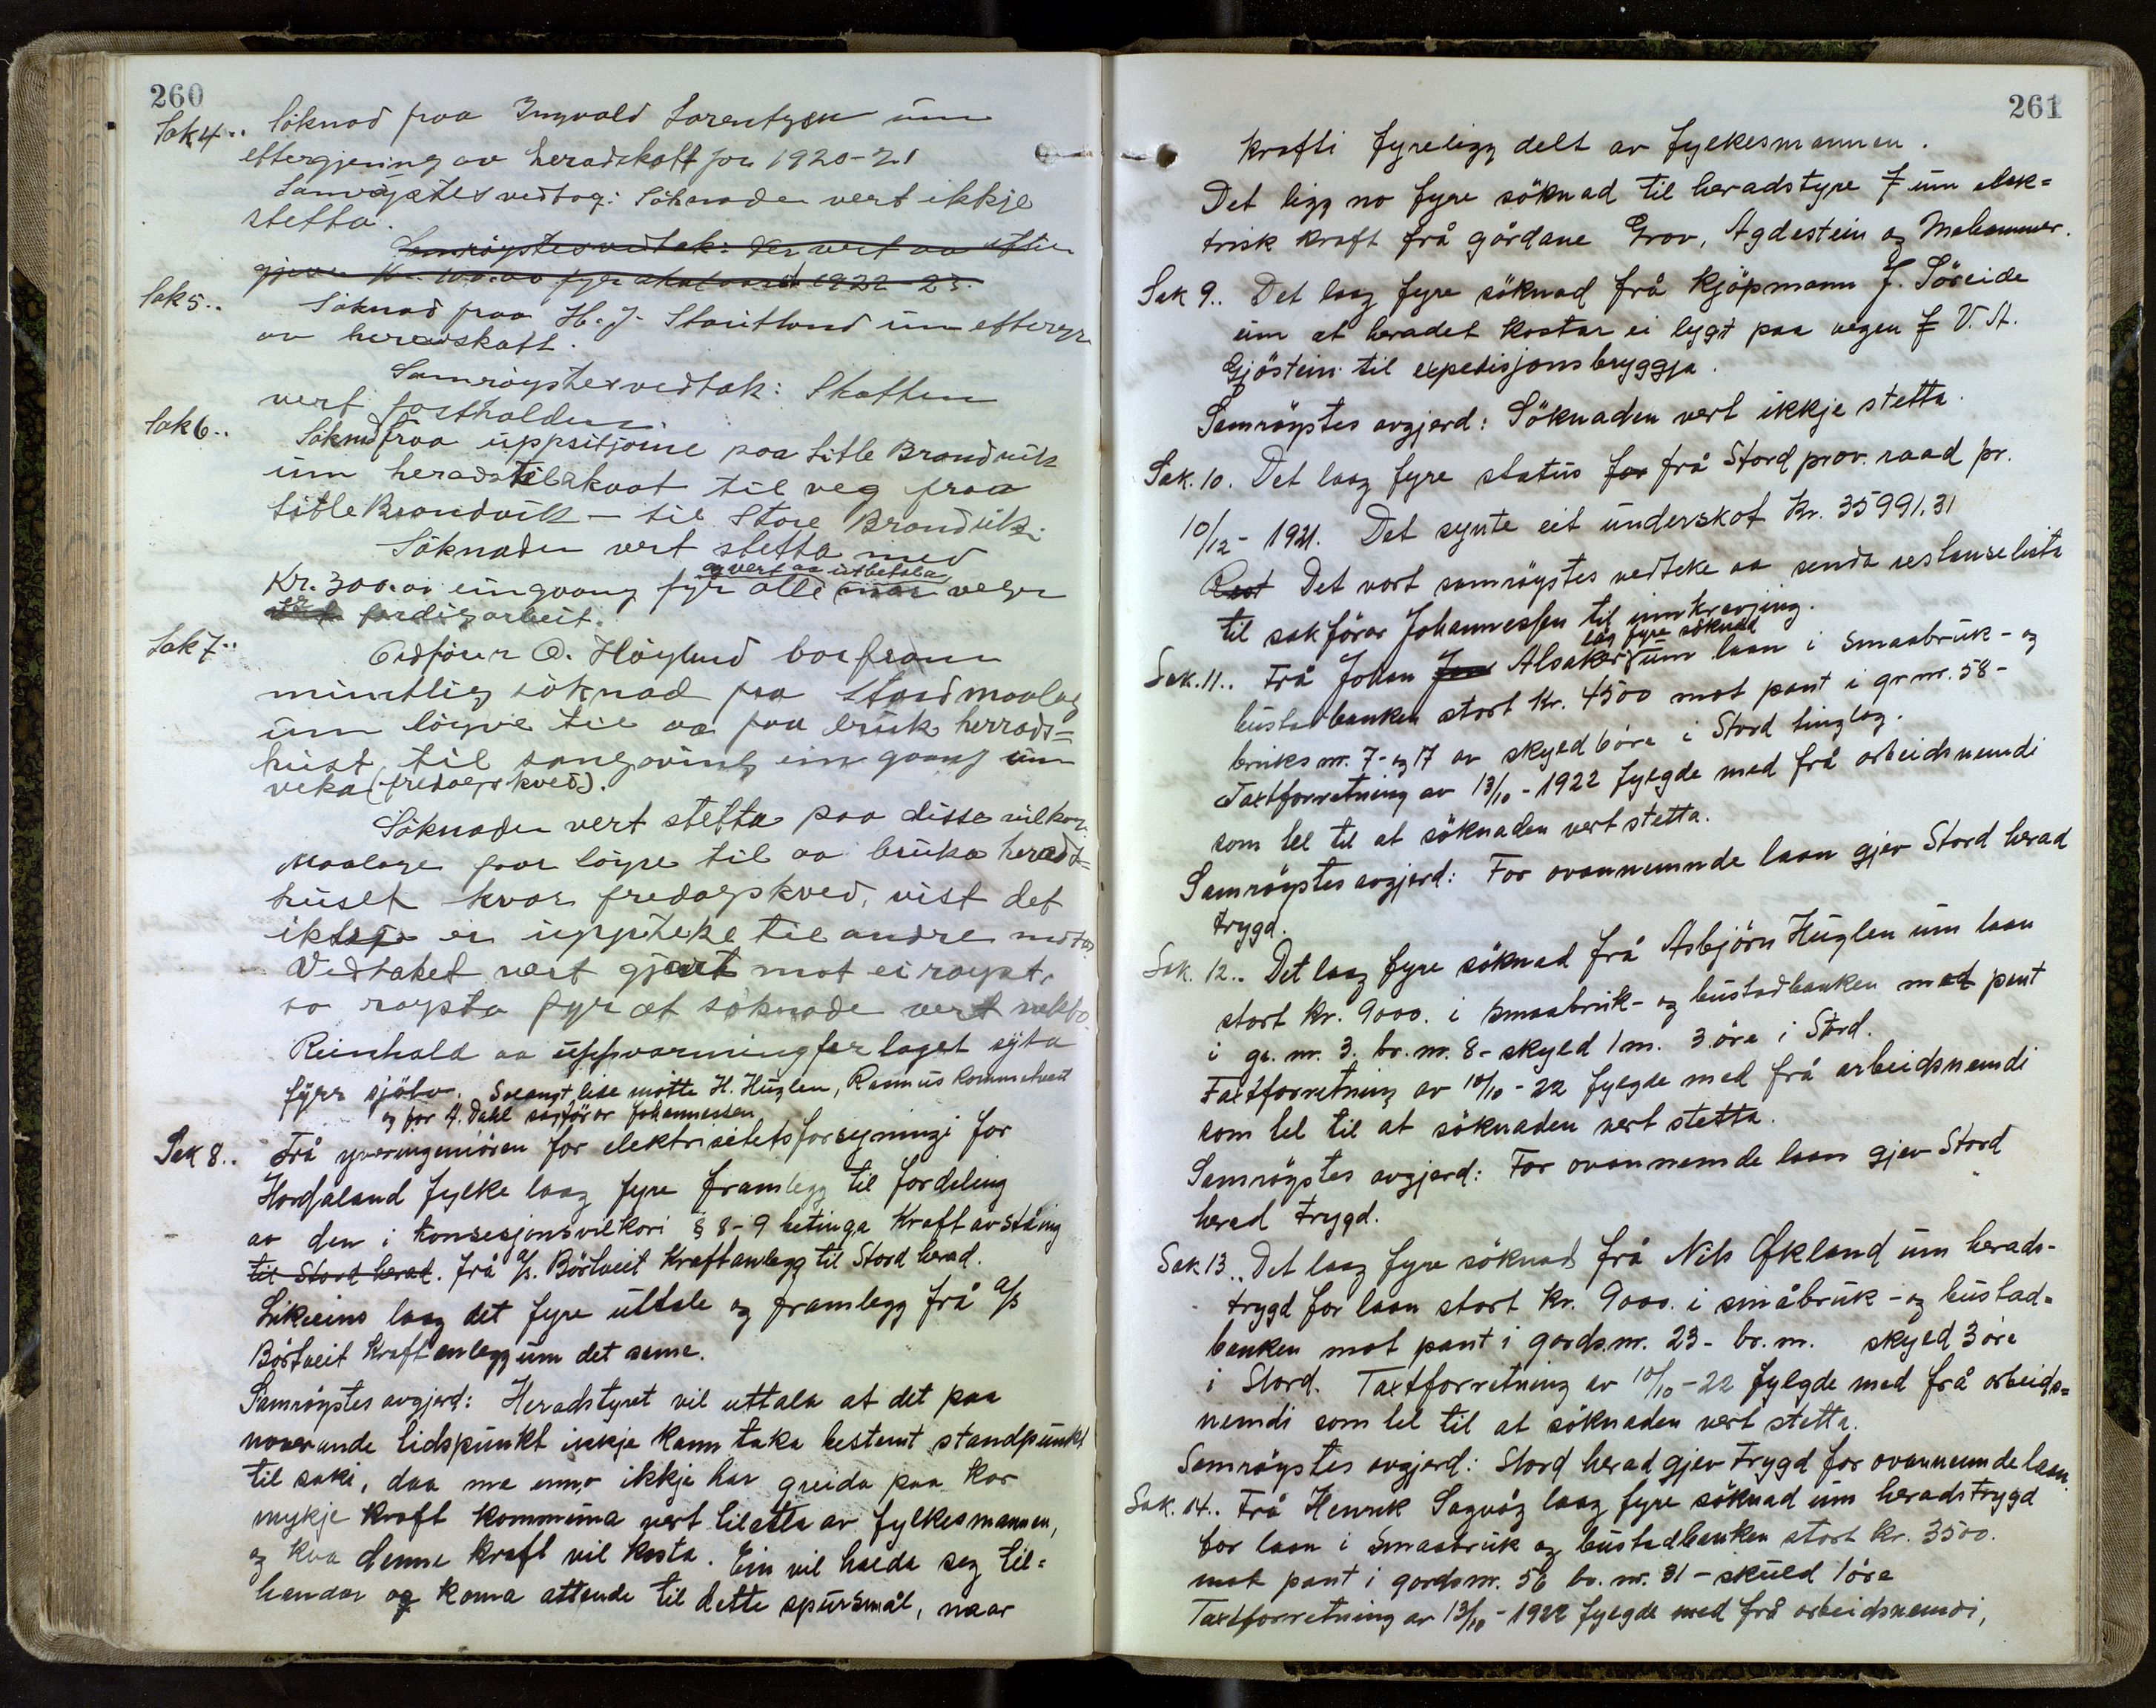 260
Sak 4.. Söknad fraa Ingvald Larentzen um
eftergjeving av heradskatt for 1920-21
Samröystes vedtag: Söknaden vert ikkje
stetta.
Samröystesvedtak: Der vert aa efter
gjeve Kr. 100.00 fyr skataaret 1922-23.
Sak 5.. Söknad fraa H. J. Stautland um eftergj.
av heradskatt.
Samröystesvedtak: Skatten
vert fastholden.
Sak 6.. Söknad fraa uppsitjarne paa Litle Brandvik
um heradstilskoot til veg fraa
Litle Brandvik — til Store Brandvik.
Söknaden vert stetta med
og vert aa utbetala
Kr. 300.00 eingong fyr alle naar vegen
er ferdigarbeit.
Sak 7.. Ordförer O. Höylund bar fram
mundtlig söknad fra Stord maallag
um löyve til aa faa bruk herrads=
huset til songöving ein gaang um
veka (fredagskveld).
Söknaden vert stetta paa disse vilkor.
Maalage faar löyve til aa bruka herads=
huset kvar fredagskveld, vist det
ikkje er uppteke til andre
Vedtaket vert gjort mot ei röyst,
so röysta fyr at söknade vert nekta.
Reinhald aa uppvarming fær laget syta
fyrr sjölv. Soeangt lese mötte H. Huglen, Rasmus Kommetveit
og for A. Dahl sakförar Johannessen
Sak 8.. Frå yveringeniören for elektrisitetsforsyningi for
Hordaland fylke laag fyre framlegg til fordeling
av den i konsesjonsvilkori § 8-9 betinga Kraftavståing
til Stord herad. frå A/s. Börtveit Kraftanlegg til Stord herad.
Likeeins laag det fyre uttale og framlegg frå A/s
Börtveit Kraftanlegg um det same.
Samröystes avgjerd: Heradstyret vil uttala at det paa
noverande tidspunkt ikkje kann taka bestemt standpunkt
til saki, daa me enno ikkje har greida paa kor
mykje kraft kommuna vert tilatta av fylkesmannen,
og kva denne kraft vil kosta. Ein vil halda seg til=
handar og koma attende til dette spursmål, naar
261
krafti fyreligg delt av fylkesmannen.
Det ligg no fyre söknad til heradstyre f um elek=
trisk kraft frå gårdane Grov, Agdestein og Mehammer.
Sak 9.. Det laag fyre söknad frå kjöpmann J. Söreide
um at heradet kostar ei lygt paa vegen f V. A.
Gjöstein til expedisjonsbryggja.
Samröystes avgjerd: Söknaden vert ikkje stetta.
Sak. 10. Det laag fyre status for frå Stord prov. raad pr.
10/12 - 1921. Det synte eit underskot kr. 35991.31
Rest Det vart samröystes vedteke aa senda restanselista
til sakförar Johannessen til innkrevjing.
lag fyre söknad
Sak. 11.. Frå Johan Alsaker um laan i Smaabruk- og
bustadbanken stort kr. 4500 mot pant i gr nr. 58-
bruks nr. 7- og 17 av skyld 6 öre i Stord tinglag.
Taxtforretning av 13/10 - 1922 fylgde med frå arbeidsnemdi
som lel til at söknaden vert stetta.
Samröystes avgjerd: For ovannemnde laan gjev Stord herad
trygd.
Sak. 12.. Det laag fyre söknad frå Asbjörn Huglen um laan
stort kr. 9000. i Smaabruk- og bustadbanken mot pant
i gr. nr. 3. br. nr. 8- skyld 1 m. 3 öre i Stord.
Taxtforretning av 10/10 - 22 fylgde med frå arbeidsnemdi
som lel til at söknaden vert stetta.
Samröystes avgjerd: For ovannemde laan gjev Stord
herad trygd.
Sak. 13.. Det laag fyre söknad frå Nils Økland um herads-
trygd for laan stort kr. 9000. i småbruk- og bustad=
banken mot pant i gards.nr. 23- br. nr. skyld 3 öre
i Stord. Taxtforretning av 10/10 - 22 fylgde med frå arbeids=
nemdi som lel til at söknaden vert stetta.
Samröystes avgjerd: Stord herad gjev trygd for ovannemde laan.
Sak. 14.. Frå Henrik Sagvåg laag fyre söknad um heradstrygd
for laan i Smaabruk og bustadbanken stort kr. 3500.
mot pant i gardsnr. 56 br. nr. 31 - skuld 1 öre
Taxtforretning av 13/10 - 1922 fylgde med frå arbeidsnemdi,